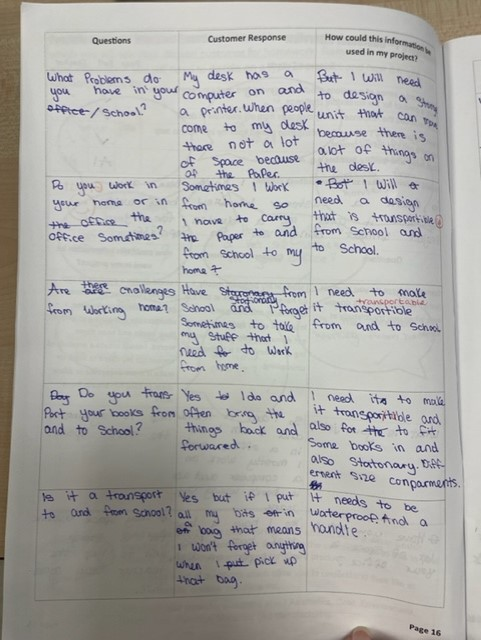 Questions
Customer Response
How could this information be
used in my project?
What Problems do
you have in your
office/School?
My desk has a
computer on and
a printer. When people
come to my desk
there not a lot
of Space because
of the Paper.
But I Will need
to design a Strong
unit that can
because there is
a lot of things on
the desk.
Do you work in
your home or in
the office the
office Sometimes?
Sometimes I Work
from home so
I have to carry
the Paper to and
from School to my
home?
But I Will
need a design
that is transportible
from School and
to School.
Are there challenges
from Working home?
Have Stationary from
School and I forget
Sometimes to take
my Stuff that I
need to Work
from home.
I need to make
transportable
it transportible
from and to School
Do you trans-
Port your books from
and to School?
Yes I do and
often bring the
things back and
forwared.
I need to make
it transportible and
also for to fit
Some books in and
also Stationary. Diff-
erent Size conparments.
Is it a transport
to and from School?
Yes but if I put
all my bits in
a bag that means
I won't forget anything
when I put pick up
that bag.
It needs to be
waterproof. And a
handle.
Page 16